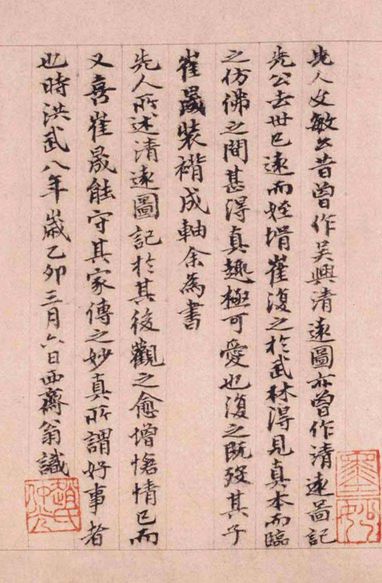 先人文敏公昔曾作吴興清遠圖亦曾作清遠圖記
先公去世已遠而姪壻崔復之於武林得見真本而臨
之仿佛之間甚得真趣極可愛也復之既歿其子
崔晟裝褙成軸余為書
先人所述清遠圖記於其後觀之愈增愴情已而
又喜崔晟能守其家傳之妙真所謂好事者
也時洪武八年歲乙卯三月六日西齋翁識
趙氏